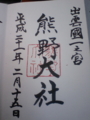 出雲國一之宮
熊野大社
平成二十一年二月十五日